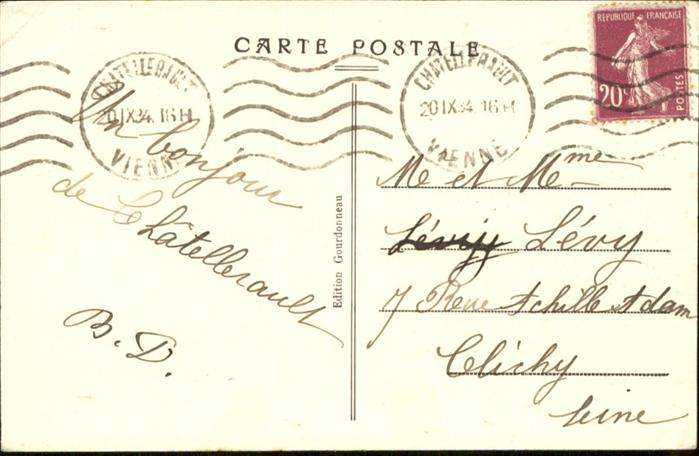 CARTE POSTALE
CHATELLERAULT
20 IX 34. 16H
VIENNE
CHATELLERAULT
20 IX 34. 16H
VIENNE
REPUBLIQUE FRANÇAISE
20c
POSTES
Un bonjour
de Châtellerault
B. D.
Edition Gourdonneau
M et Mme
Lévy
7 Rue Achille Adam
Clichy
Seine